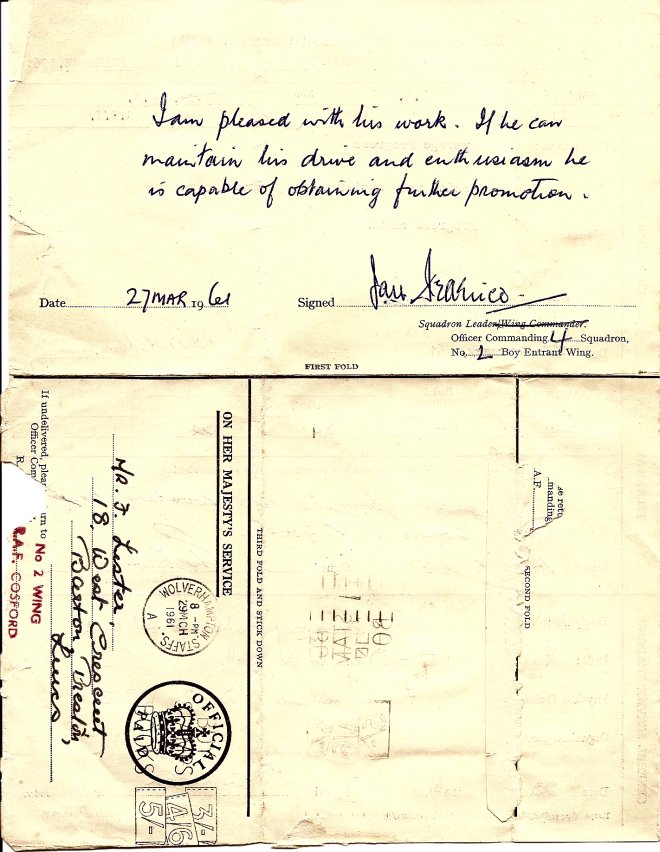 I am pleased with his work. If he can
maintain his drive and enthusiasm he
is capable of obtaining further promotion.
Date 27 MAR 1961 Signed
Squadron Leader/Wing Commander.
Officer Commanding 4 Squadron,
No. 2 Boy Entrant Wing.
FIRST FOLD
ON HER MAJESTY'S SERVICE
MR. J. Lester,
18, West Crescent
Barton, Preston,
Lancs
If undelivered, pleas urn to
Officer Com
R.
No 2 WING
R.A.F. COSFORD
WOLVERHAMPTON STAFFS.
8 - PM
29 MCH
1961
A
OFFICIAL
PAID
3/-
4/6
5/-
THIRD FOLD AND STICK DOWN
SECOND FOLD
se retu
manding
A.F.